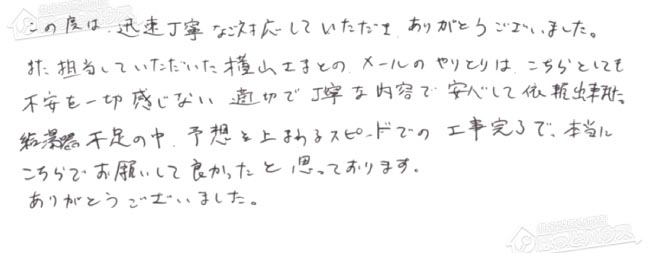 この度は、迅速丁寧なご対応していただき、ありがとうございました。
また担当していただいた横山さまとの、メールのやりとりは、こちらとしても
不安を一切感じない適切で丁寧な内容で安心して依頼出来ました。
給湯器不足の中、予想を上まわるスピードでの工事完了で、本当に
こちらでお願いして良かったと思っております。
ありがとうございました。